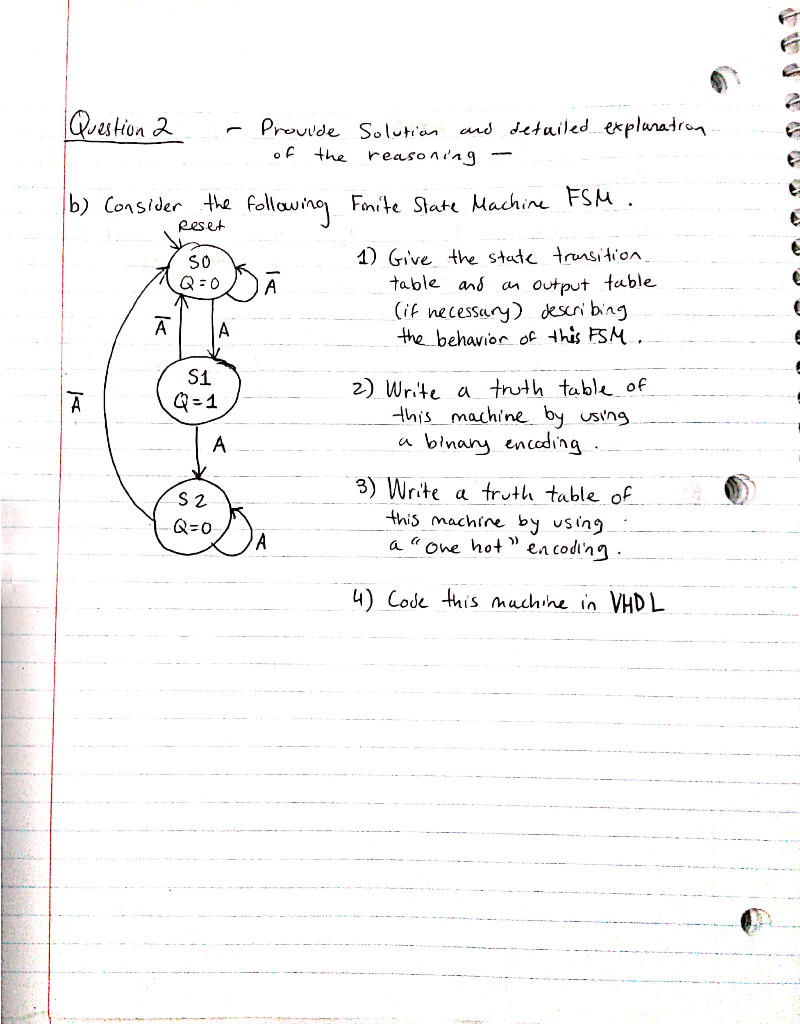 Question 2 - Provide Solution and detailed explanation
of the reasoning -
b) Consider the following Finite State Machine FSM.
Reset
S0
Q=0
A̅
A̅
A
S1
Q=1
A̅
A
S2
Q=0
A
1) Give the state transition
table and an output table
(if necessary) describing
the behavior of this FSM.
2) Write a truth table of
this machine by using
a binary encoding.
3) Write a truth table of
this machine by using
a "one hot" encoding.
4) Code this machine in VHDL